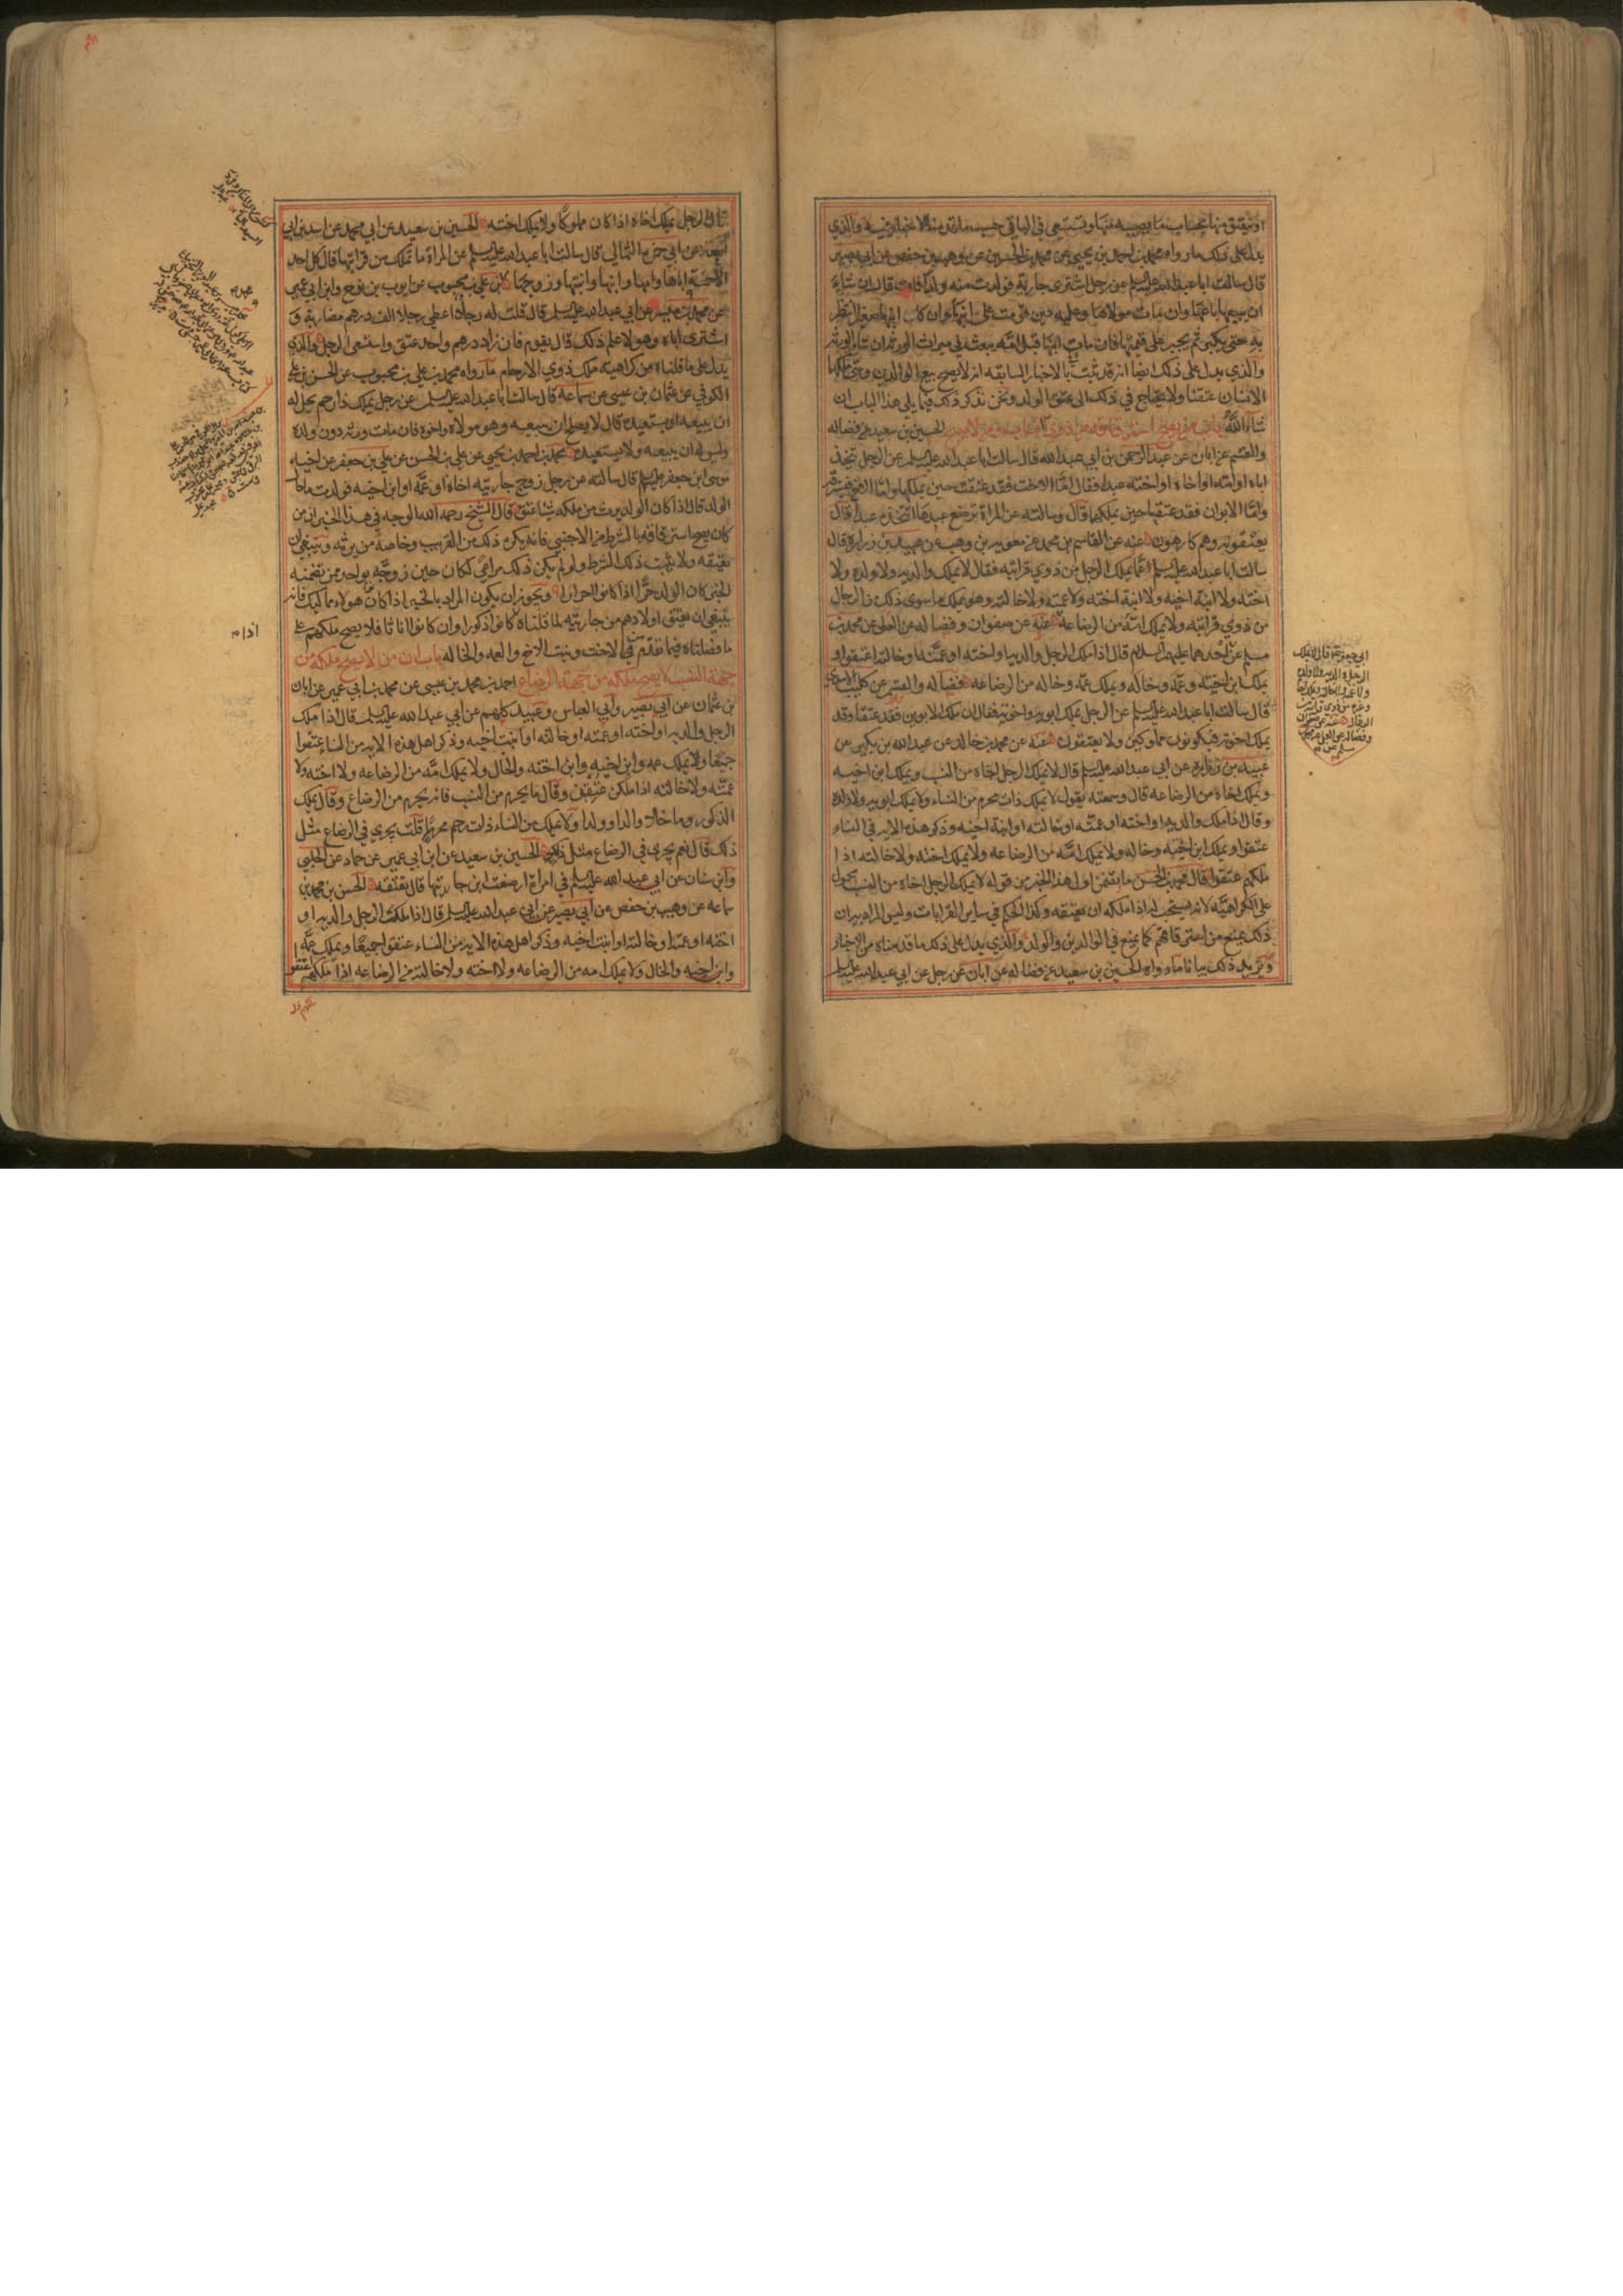 او تعتق منها بحساب ما يصيبه منها وتستسعى في الباقي حسب ما تقدمت الاخبار فيه والذي
يدل على ذلك ما رواه محمد بن احمد بن يحيى عن محمد بن الحسين عن وهيب بن حفص عن ابي بصير
قال سالت ابا عبد الله عليه السلم عن رجل اشترى جارية فولدت منه ولدا فمات قال ان شاء
ان يبيعها باعها وان مات مولاها وعليه دين قومت على ابنها وان كان ابنها صغيرا انتظر
به حتى يكبر ثم يجبر على قيمتها فان مات ابنها قبل امه بيعت في ميراث الورثة ان شاء الورثة
والذي يدل على ذلك ايضا انه قد ثبت بالاخبار السابقة انه لا يصح بيع الوالدين ومتى ملكهما
الانسان عتقا ولا يحتاج في ذلك الى عتق الولد ونحن نذكر ذلك فيما يلي هذا الباب ان
شاء الله الحسين بن سعيد عن فضاله
والقسم عن ابان عن عبد الرحمن بن ابي عبد الله قال سالت ابا عبد الله عليه السلم عن الرجل يتخذ
اباه او امه او اخاه او اخته عبدا فقال اما الاخت فقد عتقت حين يملكها واما الاخ فيسترقه
واما الابوان فقد عتقا حين يملكهما قال وسالته عن المراة ترضع عبدها اتتخذه عبدا قال
يعتقونه وهم كارهون عنه عن القاسم بن محمد عن معويه بن وهب عن عبيد بن زراره قال
سالت ابا عبد الله عليه السلم عما يملك الرجل من ذوي قرابته فقال لا يملك والديه ولا ولده ولا
اخته ولا ابنة اخيه ولا ابنة اخته ولا عمته ولا خالته وهو يملك ما سوى ذلك من الرجال
من ذوي قرابته ولا يملك امه من الرضاعه عنه عن صفوان وفضاله عن العلا عن محمد بن
مسلم عن احدهما عليهما السلام قال اذا ملك الرجل والديه او اخته او عمته او خالته اعتقوا و
يملك ابن اخيه وعمه وخاله ويملك عمه وخاله من الرضاعه فضاله والقسم عن كليب الاسدي
قال سالت ابا عبد الله عليه السلم عن الرجل يملك ابويه واخوته فقال ان ملك الابوين فقد عتقا وقد
يملك اخوته فيكونون مملوكين ولا يعتقون عنه عن محمد بن خالد عن عبد الله بن بكير عن
عبيد بن زراره عن ابي عبد الله عليه السلم قال لا يملك الرجل اخاه من النسب ويملك ابن اخيه
ويملك اخاه من الرضاعه قال وسمعته يقول لا يملك ذات محرم من النساء ولا يملك ابويه ولا ولده
وقال اذا ملك والديه او اخته او عمته او خالته او ابنة اخيه وذكر هذه الاية في النساء
عتقوا ويملك ابن اخيه وخاله ولا يملك امه من الرضاعه ولا يملك اخته ولا خالته اذا
ملكهم عتقوا قال محمد بن الحسن ما يتضمن اول هذا الخبر من قوله لا يملك الرجل اخاه من النسب محمول
على الكراهية لانه يستحب له اذا ملكه ان يعتقه وكذا الحكم في ساير القرابات وليس المراد به ان
ذلك يمنع من استرقاقهم كما يمنع في الوالدين والولد والذي يدل على ذلك ما قدمناه من الاخبار
ويزيد ذلك بيانا ما رواه الحسين بن سعيد عن فضاله عن ابان عن رجل عن ابي عبد الله عليه السلم
ابي جعفر قال لا يملك
الرجل والديه ولا ولده
قال الرجل يملك اخاه اذا كان مملوكا ولا يملك اخته الحسين بن سعيد عن ابي محمد عن اسد بن ابي
العلا عن ابي حمزه الثمالي قال سالت ابا عبد الله عليه السلم عن المراة ما تملك من قرابتها قال كل احد
الا خمسة اباها وامها وابنها وابنتها وزوجها بن علي بن محبوب عن ايوب بن نوح وابن ابي عمير
عن محمد بن ميسر عن ابي عبد الله عليه السلم قال قلت له رجل اعطى رجلا الف درهم مضاربة و
اشترى اباه وهو لا يعلم ذلك قال يقوم فان زاد درهم واحد عتق واستسعى الرجل والذي
يدل على ما قلناه من كراهية ملك ذوي الارحام ما رواه محمد بن علي بن محبوب عن الحسن بن علي
الكوفي عن عثمان بن عيسى عن سماعة قال سالت ابا عبد الله عليه السلم عن رجل يملك ذا رحم يحل له
ان يبيعه او يستعبده قال لا يصلح ان يبيعه وهو مولاه واخوه فان مات ورثه دون ولده
وليس له ان يبيعه ولا يستعبده محمد بن احمد بن يحيى عن علي بن الحسن عن علي بن جعفر عن اخيه
موسى بن جعفر عليه السلم قال سالته عن رجل زوج جاريته اخاه او عمه او ابن اخيه فولدت ما حال
الولد قال اذا كان الولد يرث من ملكه شيئا عتق قال الشيخ رحمه الله الوجه في هذا الخبر انه من
كان يصح استرقاقه بالشرط من الاجنبي فانه يكره ذلك من القريب وخاصة من يرثه وينبغي ان
يعتقه ولا يثبت ذلك الشرط ولو لم يكن ذلك مراعى لكان حين زوجه بواحد ممن تضمنه
الخبر كان الولد حرا اذا كانوا احرارا ويجوز ان يكون المراد بالخبر اذا كان هولاء مماليك فانه
ينبغي ان يعتق اولادهم من جاريته لما قلناه كانوا ذكورا وان كانوا اناثا فلا يصح ملكهم على
ما فصلناه فيما تقدم في الاخت وبنت الاخ والعمه والخاله باب ان من لا يصح ملكه من
جهة النسب لا يصح ملكه من جهة الرضاع احمد بن محمد بن عيسى عن محمد بن ابي عمير عن ابان
بن عثمان عن ابي بصير وابي العباس وعبيد كلهم عن ابي عبد الله عليه السلم قال اذا ملك
الرجل والديه او اخته او عمته او خالته او بنت اخيه وذكر اهل هذه الاية من النساء عتقوا
جميعا ولا يملك عمه وابن اخيه وابن اخته والخال ولا يملك امه من الرضاعه ولا اخته ولا
عمته ولا خالته اذا ملكن عتقن وقال ما يحرم من النسب فانه يحرم من الرضاع وقال يملك
الذكور ما خلا والدا وولدا ولا يملك من النساء ذات رحم محرم قلت يجري في الرضاع مثل
ذلك قال نعم يجري في الرضاع مثل ذلك الحسين بن سعيد عن ابن ابي عمير عن حماد عن الحلبي
وابن سنان عن ابي عبد الله عليه السلم في امراة ارضعت ابن جاريتها قال تعتقه الحسن بن محمد بن
سماعه عن وهيب بن حفص عن ابي بصير عن ابي عبد الله عليه السلم قال اذا ملك الرجل والديه او
اخته او عمته او خالته او ابنت اخيه وذكر اهل هذه الاية من النساء عتقوا جميعا ويملك عمه
وابن اخيه والخال ولا يملك امه من الرضاعه ولا اخته ولا خالته من الرضاعه اذا ملكهم عتقوا
اذا م